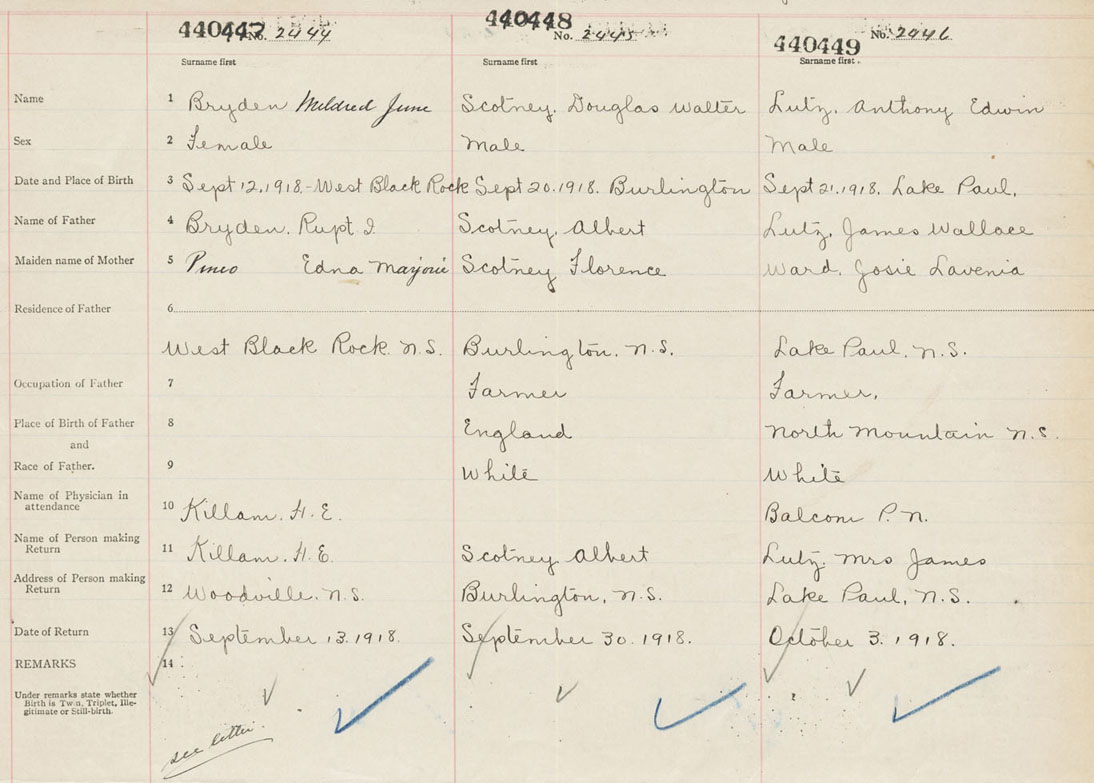 440447 440448 440449
No. 2444 No. 2445 No. 2446
Surname first Surname first Surname first
Name 1 Bryden Mildred June Scotney, Douglas Walter Lutz, Anthony Edwin
Sex 2 Female Male Male
Date and Place of Birth 3 Sept 12, 1918 - West Black Rock Sept 20. 1918. Burlington Sept 21. 1918. Lake Paul.
Name of Father 4 Bryden. Rupt. I. Scotney, Albert Lutz, James Wallace
Maiden name of Mother 5 Pineo Edna Marjorie Scotney Florence Ward, Josie Lavenia
Residence of Father 6
West Black Rock. N.S. Burlington. N.S. Lake Paul. N.S.
Occupation of Father 7 Farmer Farmer.
Place of Birth of Father 8 England North Mountain N.S.
and
Race of Father. 9 White White
Name of Physician in
attendance 10 Killam. H. E. Balcom P. N.
Name of Person making
Return 11 Killam. H. E. Scotney, Albert Lutz, Mrs James
Address of Person making
Return 12 Woodville. N.S. Burlington, N.S. Lake Paul, N.S.
Date of Return 13 September 13. 1918. September 30. 1918. October 3. 1918.
REMARKS 14
Under remarks state whether
Birth is Twin, Triplet, Ille-
gitimate or Still-birth.
see letter